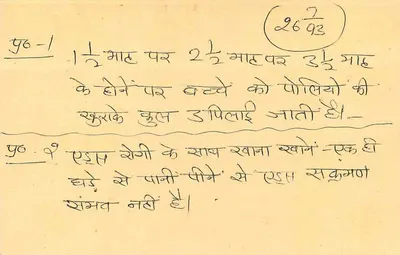 26 7/93
प्र०-1 1 1/2 माह पर 2 1/2 माह पर 3 1/2 माह
के होने पर बच्चे को पोलियो की
खुराके कुल 3 पिलाई जाती है।-
प्र०. २ एड्स रोगी के साथ खाना खाने - एक ही
घड़े से पानी पीने से एड्स संक्रमण
संभव नहीं है।